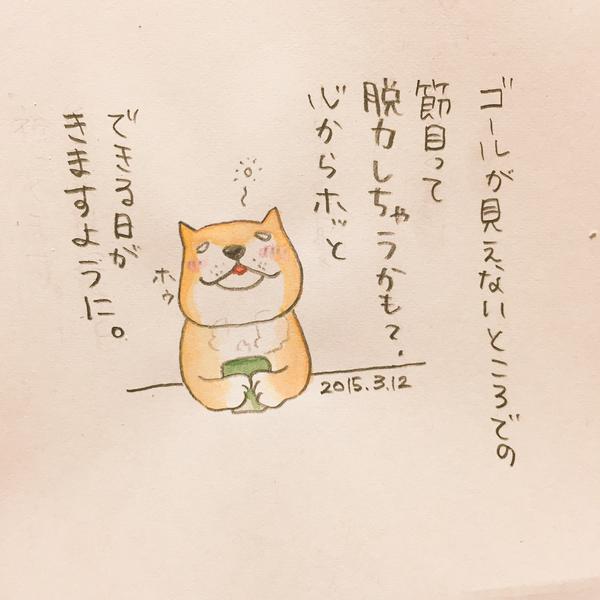 ゴールが見えないところでの
節目って
脱力しちゃうかも？.
心からホッと
できる日が
きますように。
ホゥ
2015.3.12